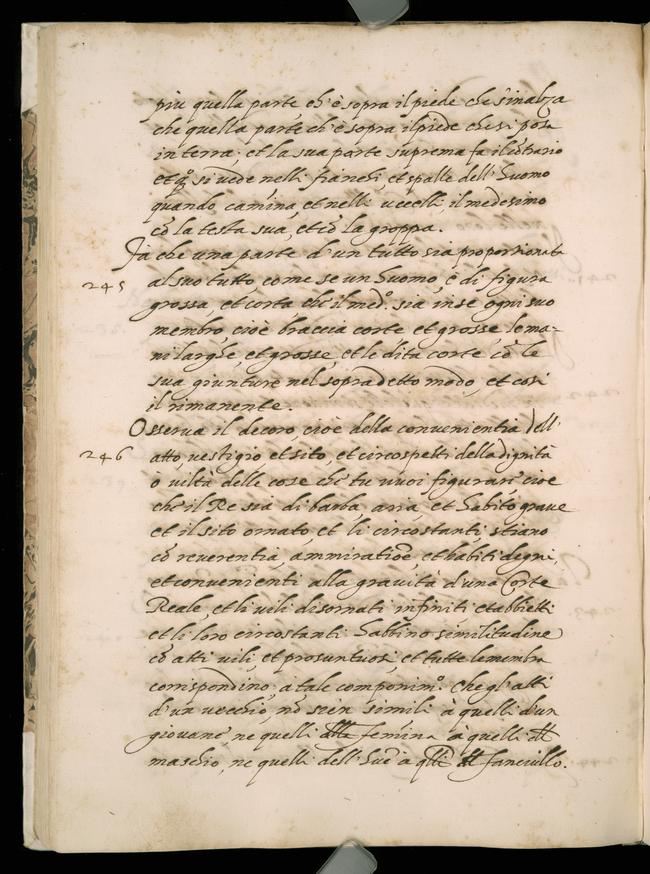 più quella parte ch'è sopra il piede che s'inalza
che quella parte ch'è sopra il piede che si posa
in terra; et la sua parte suprema fa il cōtrario
et q.º si vede nelli fianchi, et spalle dell'huomo
quando camina, et nelli uccelli, il medesimo
cō la testa sua, et cō la groppa.
Fa che una parte d'un tutto sia proportionata
245
al suo tutto, come se un huomo, è di figura
grossa, et corta che'l med.º sia in se ogni suo
membro cioè braccia corte et grosse le ma-
ni larghe, et grosse, et le dita corte cō le
sua giunture nel sopradetto modo, et così
il rimanente.
Osserva il decoro, cioè della convenientia dell'
246
atto, vestigio et sito, et circospetti della dignità
o viltà delle cose che tu vuoi figurare cioè
che il Re sia di barba, aria, et habito grave
et il sito ornato et li circostanti stiano
cō reverentia, ammiratiōe, et habiti degni,
et convenienti alla gravità d'una Corte
Reale, et li vili disornati infiniti et abbietti
et li loro circostanti habbino similitudine
cō atti vili et prosuntuosi, et tutte le membra
corrispondino, a tale componim.º Che gl'atti
d'un vecchio, nō sien simili à quelli d'un
giovane, ne quelli della femina à quelli del
maschio, ne quelli dell' à qlli del fanciullo.